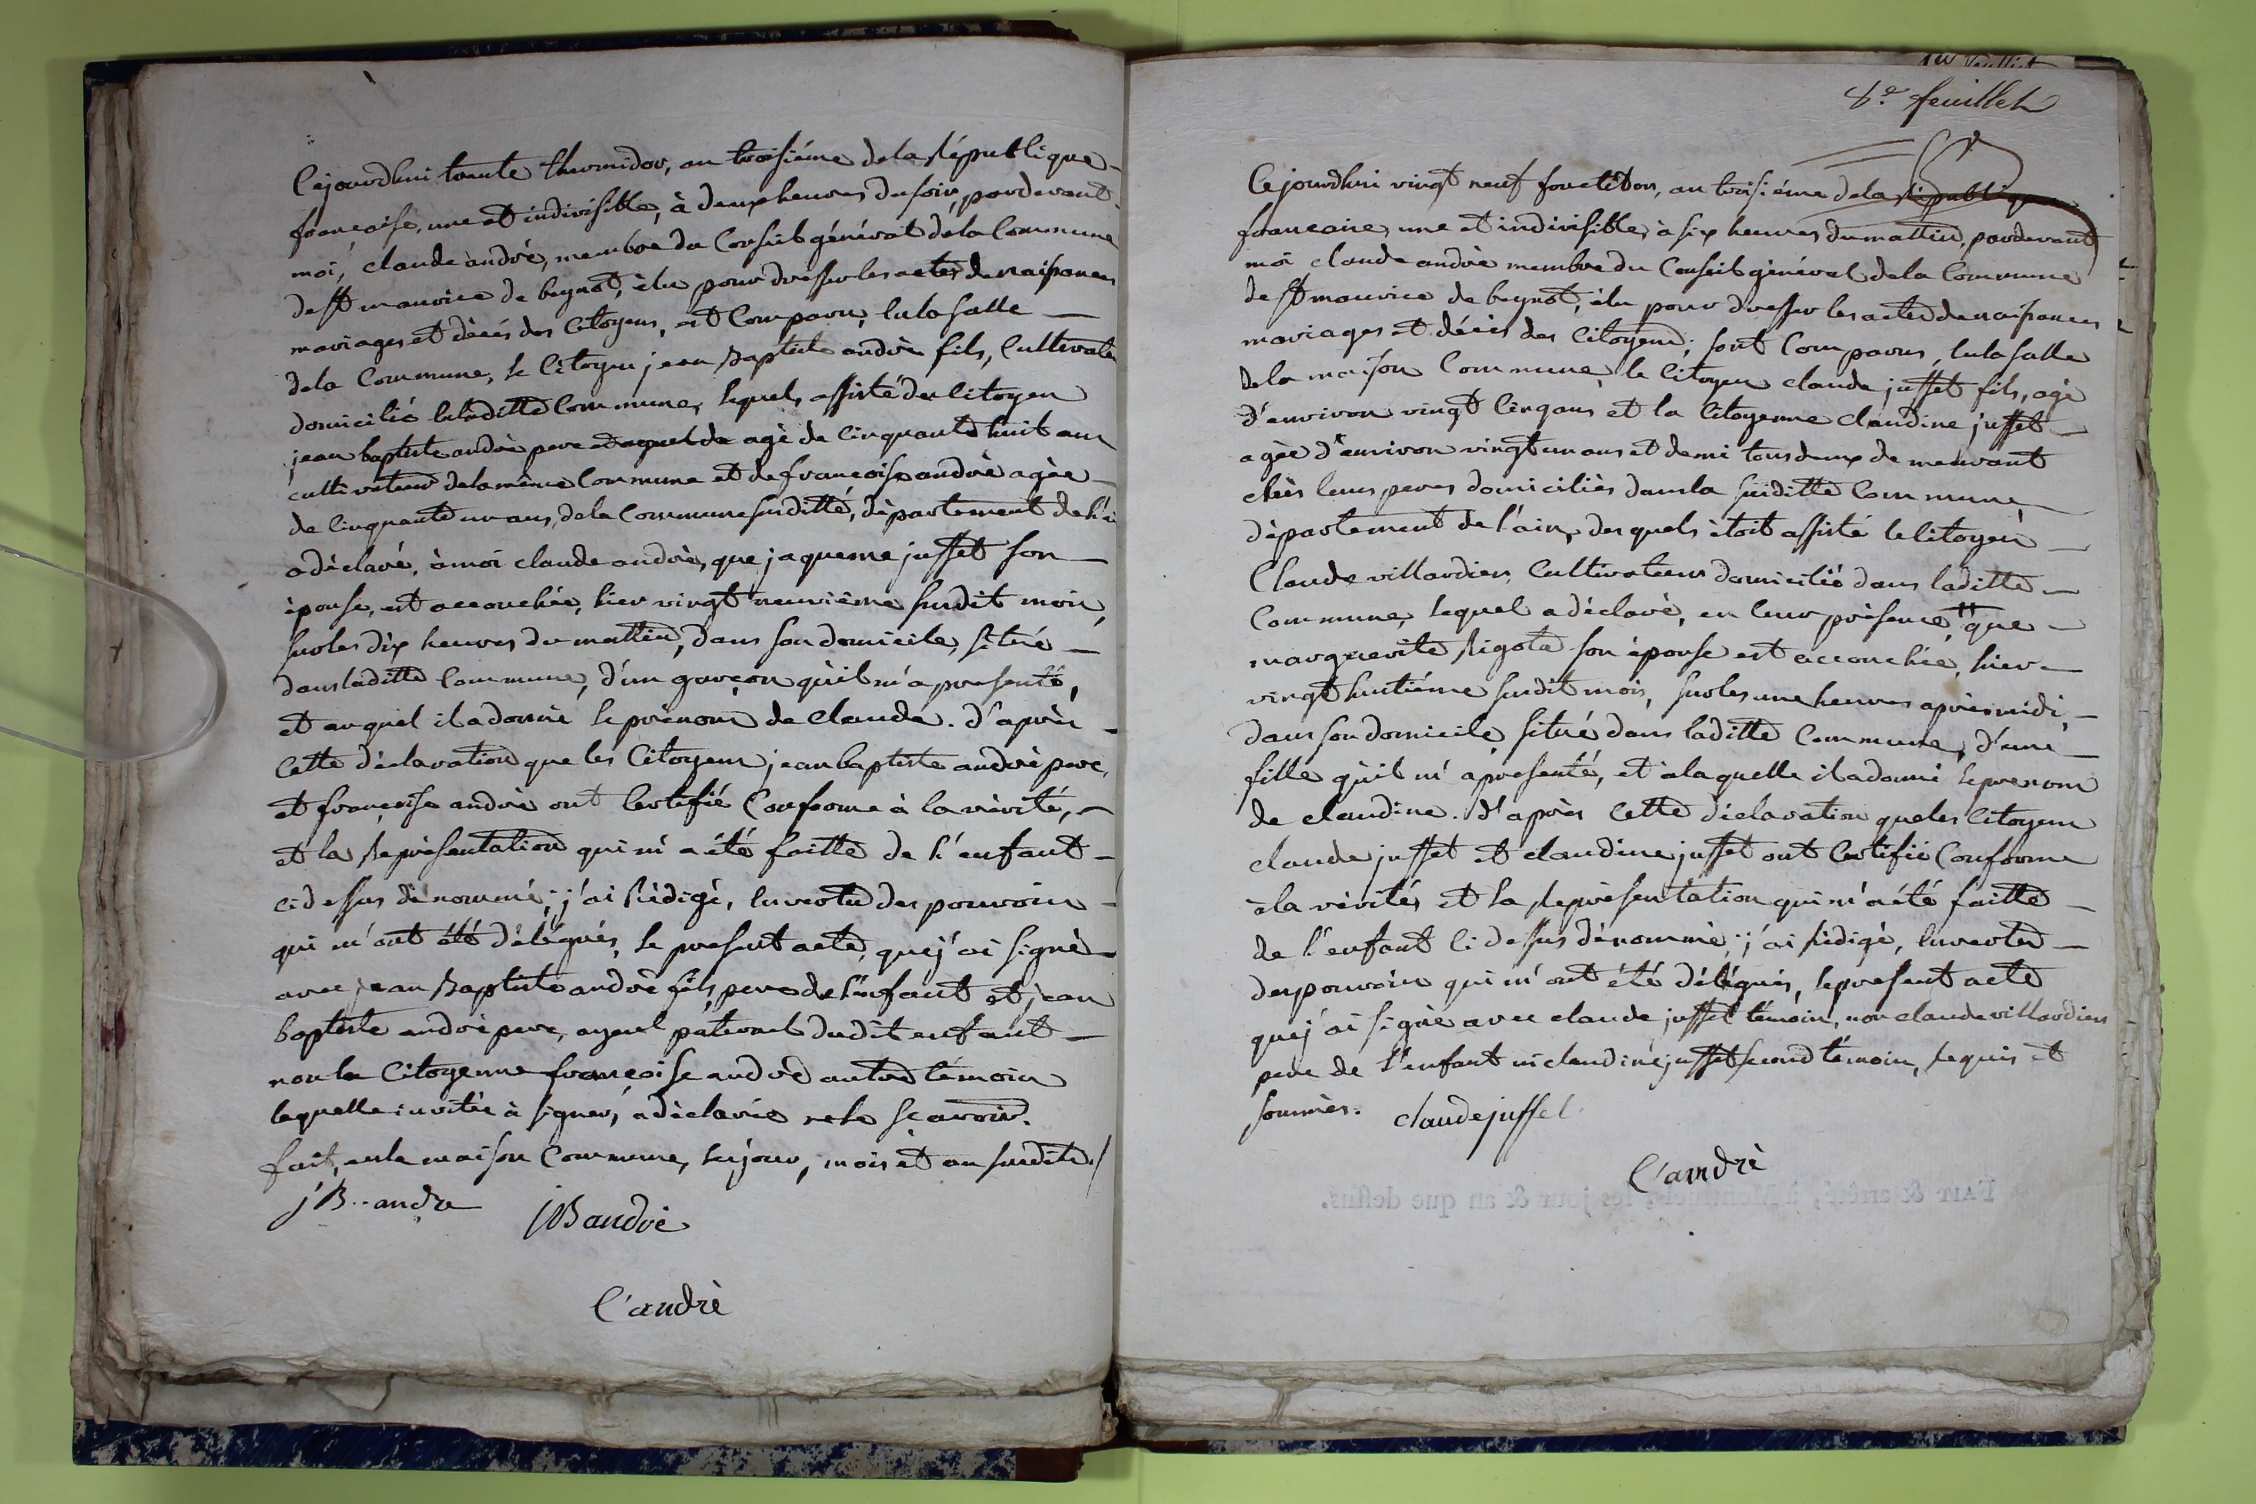 Cejourdhui trente thermidor, an troisiéme dela République
françoise, une et indivisible, à deux heures du soir, pardevant
moi, claude andrè, membre du Conseil général déla Commune
de st maurice de beynot, èlu pour dresser les actes de naissances
mariages et dècés des Citoyens, est Comparu, en la salle
dela Commune, le Citoyen jean Baptiste andrè fils, Cultivateur
domicilié en laditte Commune, lequel, assisté des Citoyen
jean baptiste andrè pere agè de Cinquante huit ans
cultivateur dela même Commune et de françoise andrè agèe
de Cinquante un ans, dela Commune susditte, dèpartement de l'ain
a dèclaré, à moi claude andrè, que jaqueme juffet son
èpouse, est accouchée, hier vingt neuviême susdit mois,
sur les dix heures du mattin, dans son domicile, situé
dans laditte Commune, d'un garçon qu'il m'a presenté,
et auquel il a donné le prènom de Claude. d'après
Cette dèclaration que les Citoyens jean baptiste andrè pere,
et françoise andrè ont Certifié Conforme à la vèrité,
et la Reprèsentation qui m'a été faitte de l'enfant
cidessus dènommé; j'ai Rèdigé, en vertu des pouvoirs
qui m'ont été dèlégués, le present acte, que j'ai signè
avec jean Baptiste andrè fils, pere de l'enfant et jean
baptiste andrè pere, ayeul paternel dudit enfant
non la Citoyenne françoise andrè autre témoin
laquelle invitée à signer, a dèclarée ne le sçavoir.
fait, en la maison Commune, les jour, mois et an susdits./
j B. andre jB andrè
C'andrè
8.e feuillet
Cejourdhui vingt neuf fructidor, an troisiéme dela république
francaise, une et indivisible, à six heures du mattin, pardevant
moi claude andrè membre du Conseil gènéral dela Commune
de st maurice de beynot, élu pour dresser les actes de naissances
mariages et décès des Citoyens; sont Comparus, en la salle
dela maison Commune, le Citoyen claude juffet fils, agè
d'environ vingt Cinq ans et la Citoyenne claudine juffet
agèe d'environ vingt un ans et demi tous deux demeurant
chès leurs peres domiciliès dans la susditte Commune,
dèpartement de l'ain, desquels ètoit assisté le Citoyen
Claude villardier, Cultivateur domicilié dans laditte
Commune, lequel a dèclarè, en leur prèsence, que
marguerite Rigole son èpouse est accouchée, hier
vingt huitiéme susdit mois, sur les une heures après midi,
dans son domicile, situé dans laditte Commune, d'une
fille qu'il m'a presenté, et à laquelle il a donné le prenom
de claudine. D'après Cette dèclaration que les Citoyens
claude juffet et claudine juffet ont Certifié Conforme
à la vèrité, et la Reprèsentation qui m'a été faitte
de l'enfant Cidessus dènommè; j'ai Rèdigè, en vertu
des pouvoirs qui m'ont été dèlègués, le present acte
que j'ai signè avec claude juffet témoin, non claude villardier
pere de l'enfant ni claudine juffet second témoin, Requis et
sommès. claude juffet
C'andrè
FAIT & arrêté, à Montluel, les jour & an que dessus.